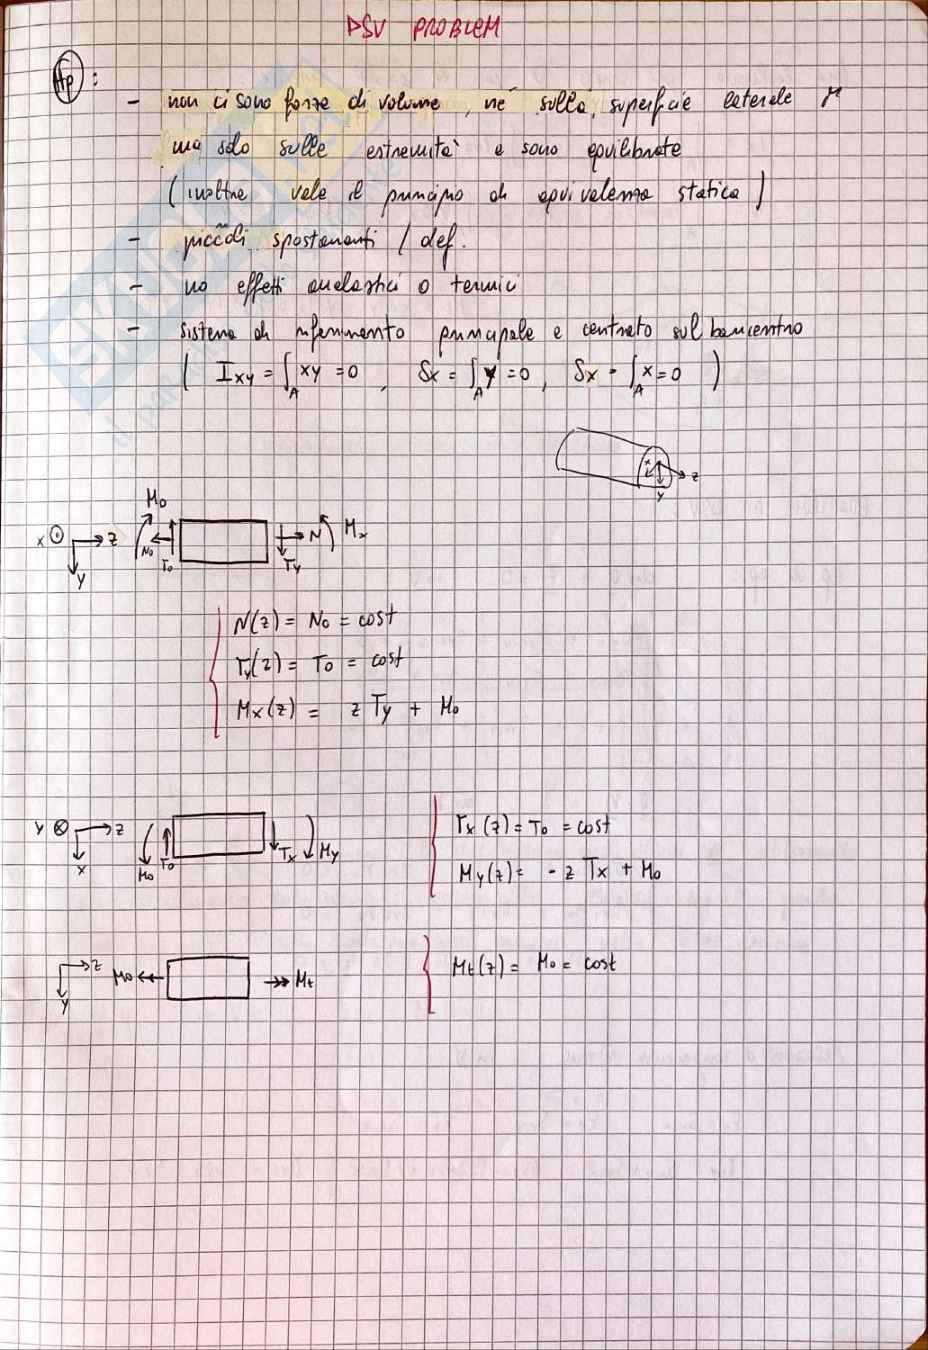 DSV PROBLEM
Hp :
- non ci sono forze di volume, né sulla superficie laterale
ma solo sulle estremità e sono equilibrate
(inoltre vale il principio di equivalenza statica)
- piccoli spostamenti / def.
- no effetti anelastici o termici
- sistema di riferimento principale e centrato sul baricentro
( Ixy = ∫A xy = 0 , Sx = ∫A y = 0 , Sx = ∫A x = 0 )
x z y
M0
x z N0 T0 N Ty Mx
y
N(z) = N0 = cost
Ty(z) = T0 = cost
Mx(z) = z Ty + M0
y z x M0 T0 Tx My
Tx(z) = T0 = cost
My(z) = - z Tx + M0
z y M0 Mt
Mt(z) = M0 = cost